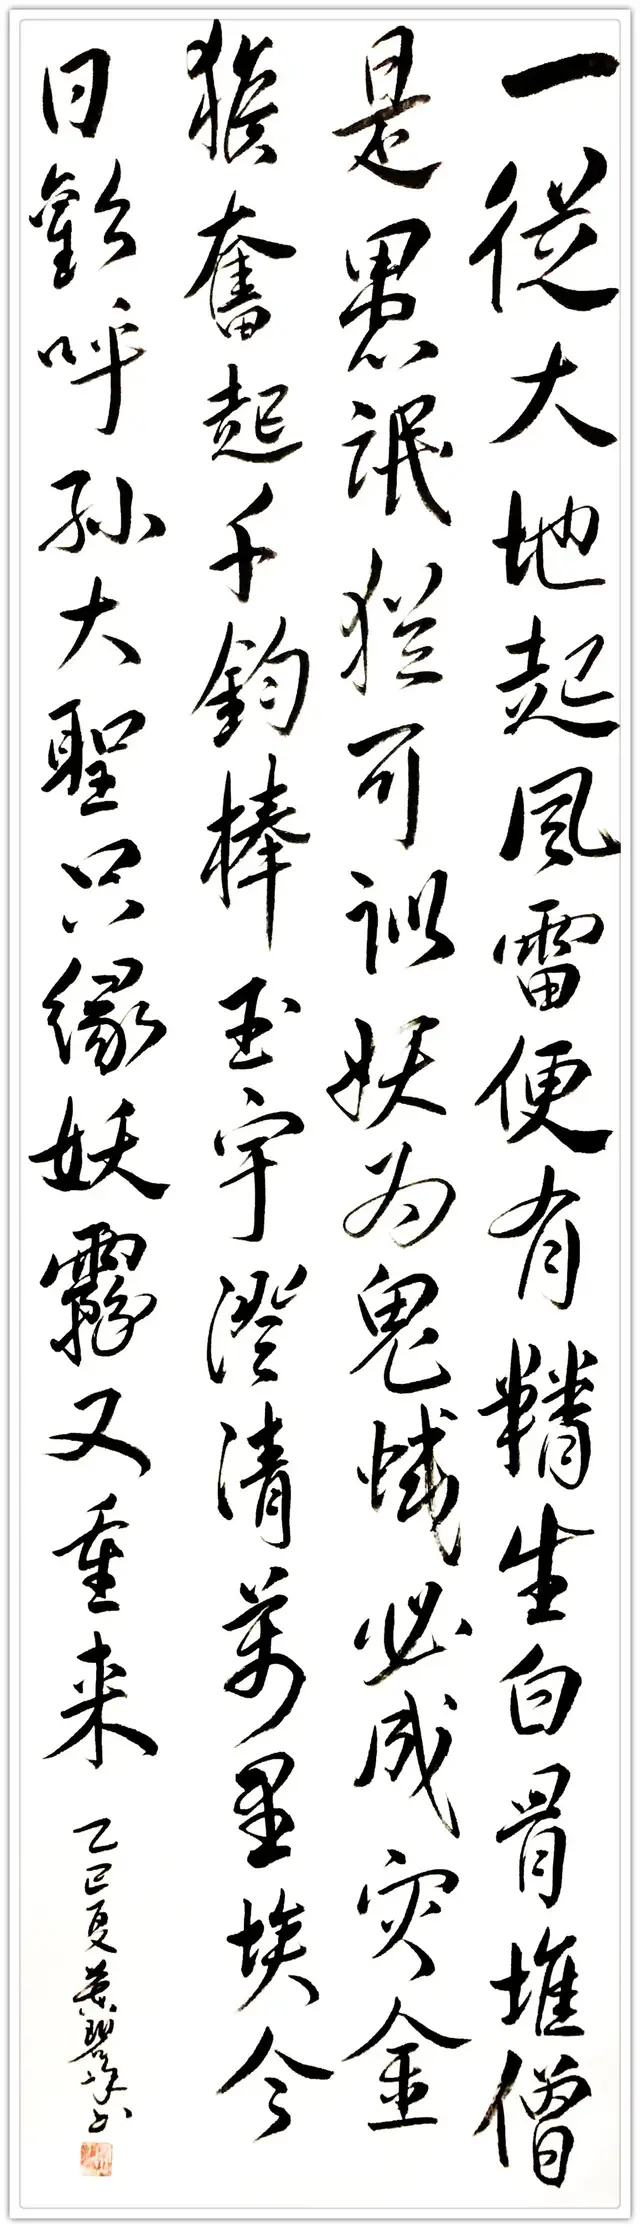 一從大地起風雷便有精生白骨堆僧
是愚氓猶可訓妖为鬼蜮必成灾金
猴奮起千鈞棒玉宇澄清萬里埃今
日歡呼孙大聖只緣妖霧又重来
乙巳夏